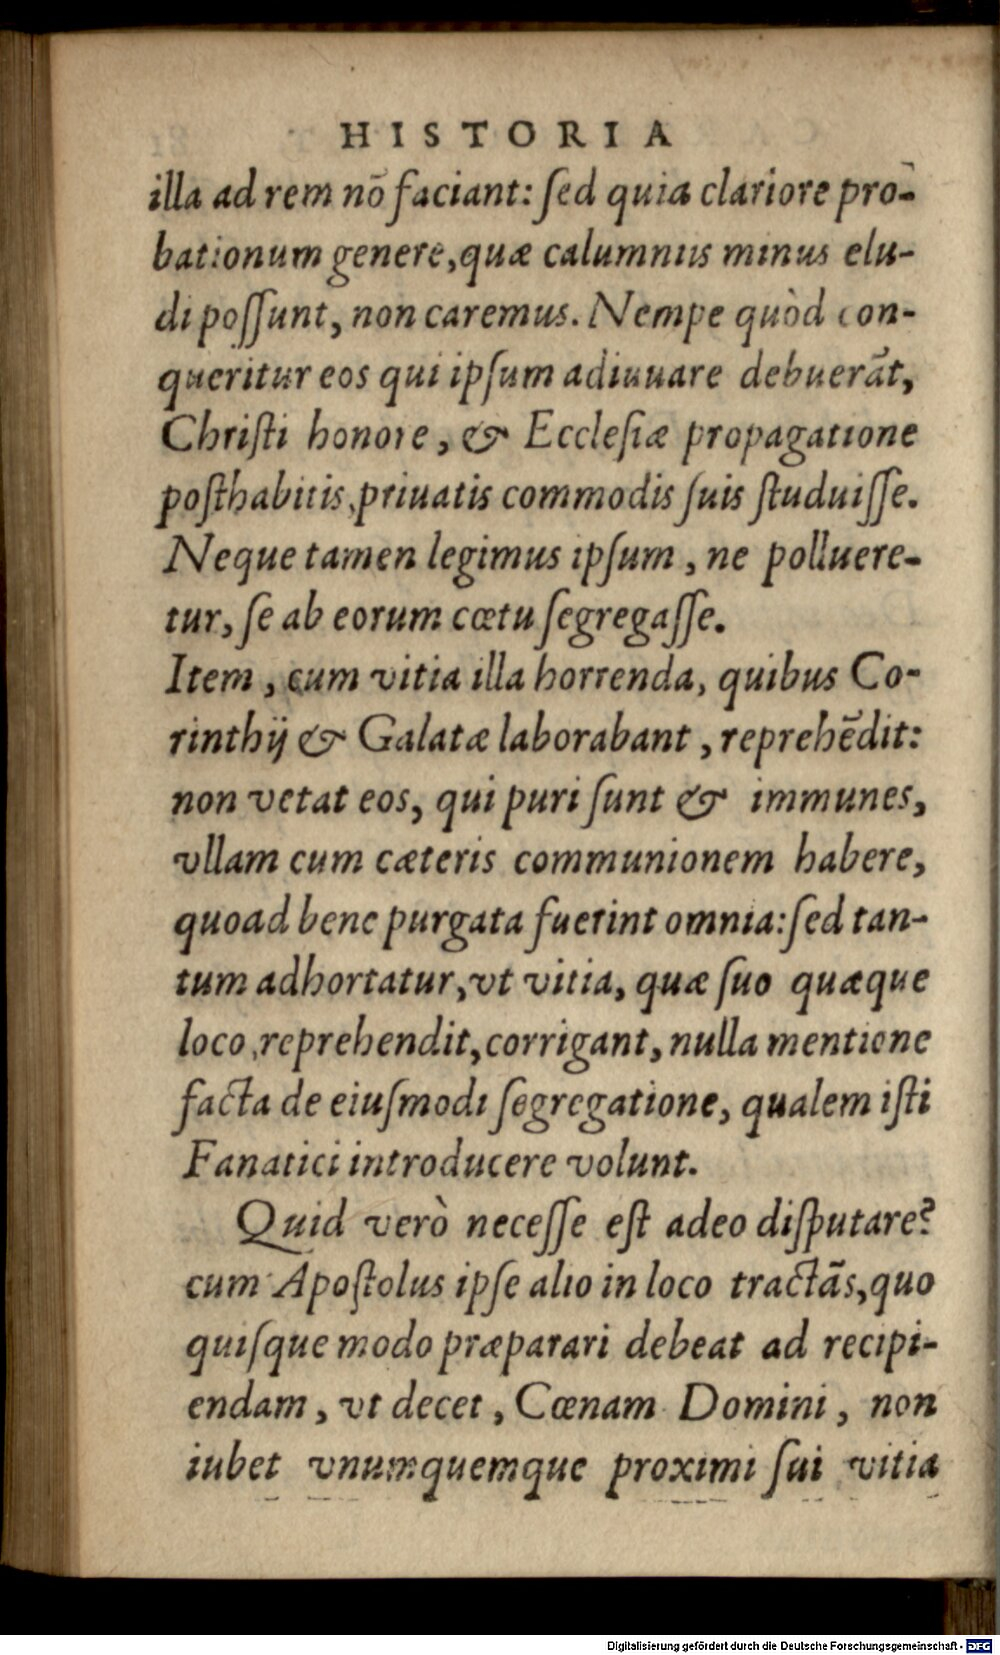 HISTORIA
illa ad rem nō faciant: ſed quia clariore pro-
bationum genere, quæ calumniis minus elu-
di poſſunt, non caremus. Nempe quòd con-
queritur eos qui ipſum adiuuare debuerāt,
Chriſti honore, & Eccleſiæ propagatione
poſthabitis, priuatis commodis ſuis ſtuduiſſe.
Neque tamen legimus ipſum, ne polluere-
tur, ſe ab eorum cœtu ſegregaſſe.
Item, cum vitia illa horrenda, quibus Co-
rinthij & Galatæ laborabant, reprehēdit:
non vetat eos, qui puri ſunt & immunes,
vllam cum cæteris communionem habere,
quoad bene purgata fuerint omnia: ſed tan-
tum adhortatur, vt vitia, quæ ſuo quæque
loco, reprehendit, corrigant, nulla mentione
facta de eiuſmodi ſegregatione, qualem iſti
Fanatici introducere volunt.
Quid verò neceſſe eſt adeo diſputare?
cum Apoſtolus ipſe alio in loco tractās, quo
quiſque modo præparari debeat ad recipi-
endam, vt decet, Cœnam Domini, non
iubet vnumquemque proximi ſui vitia
Digitalisierung gefördert durch die Deutsche Forschungsgemeinschaft - DFG